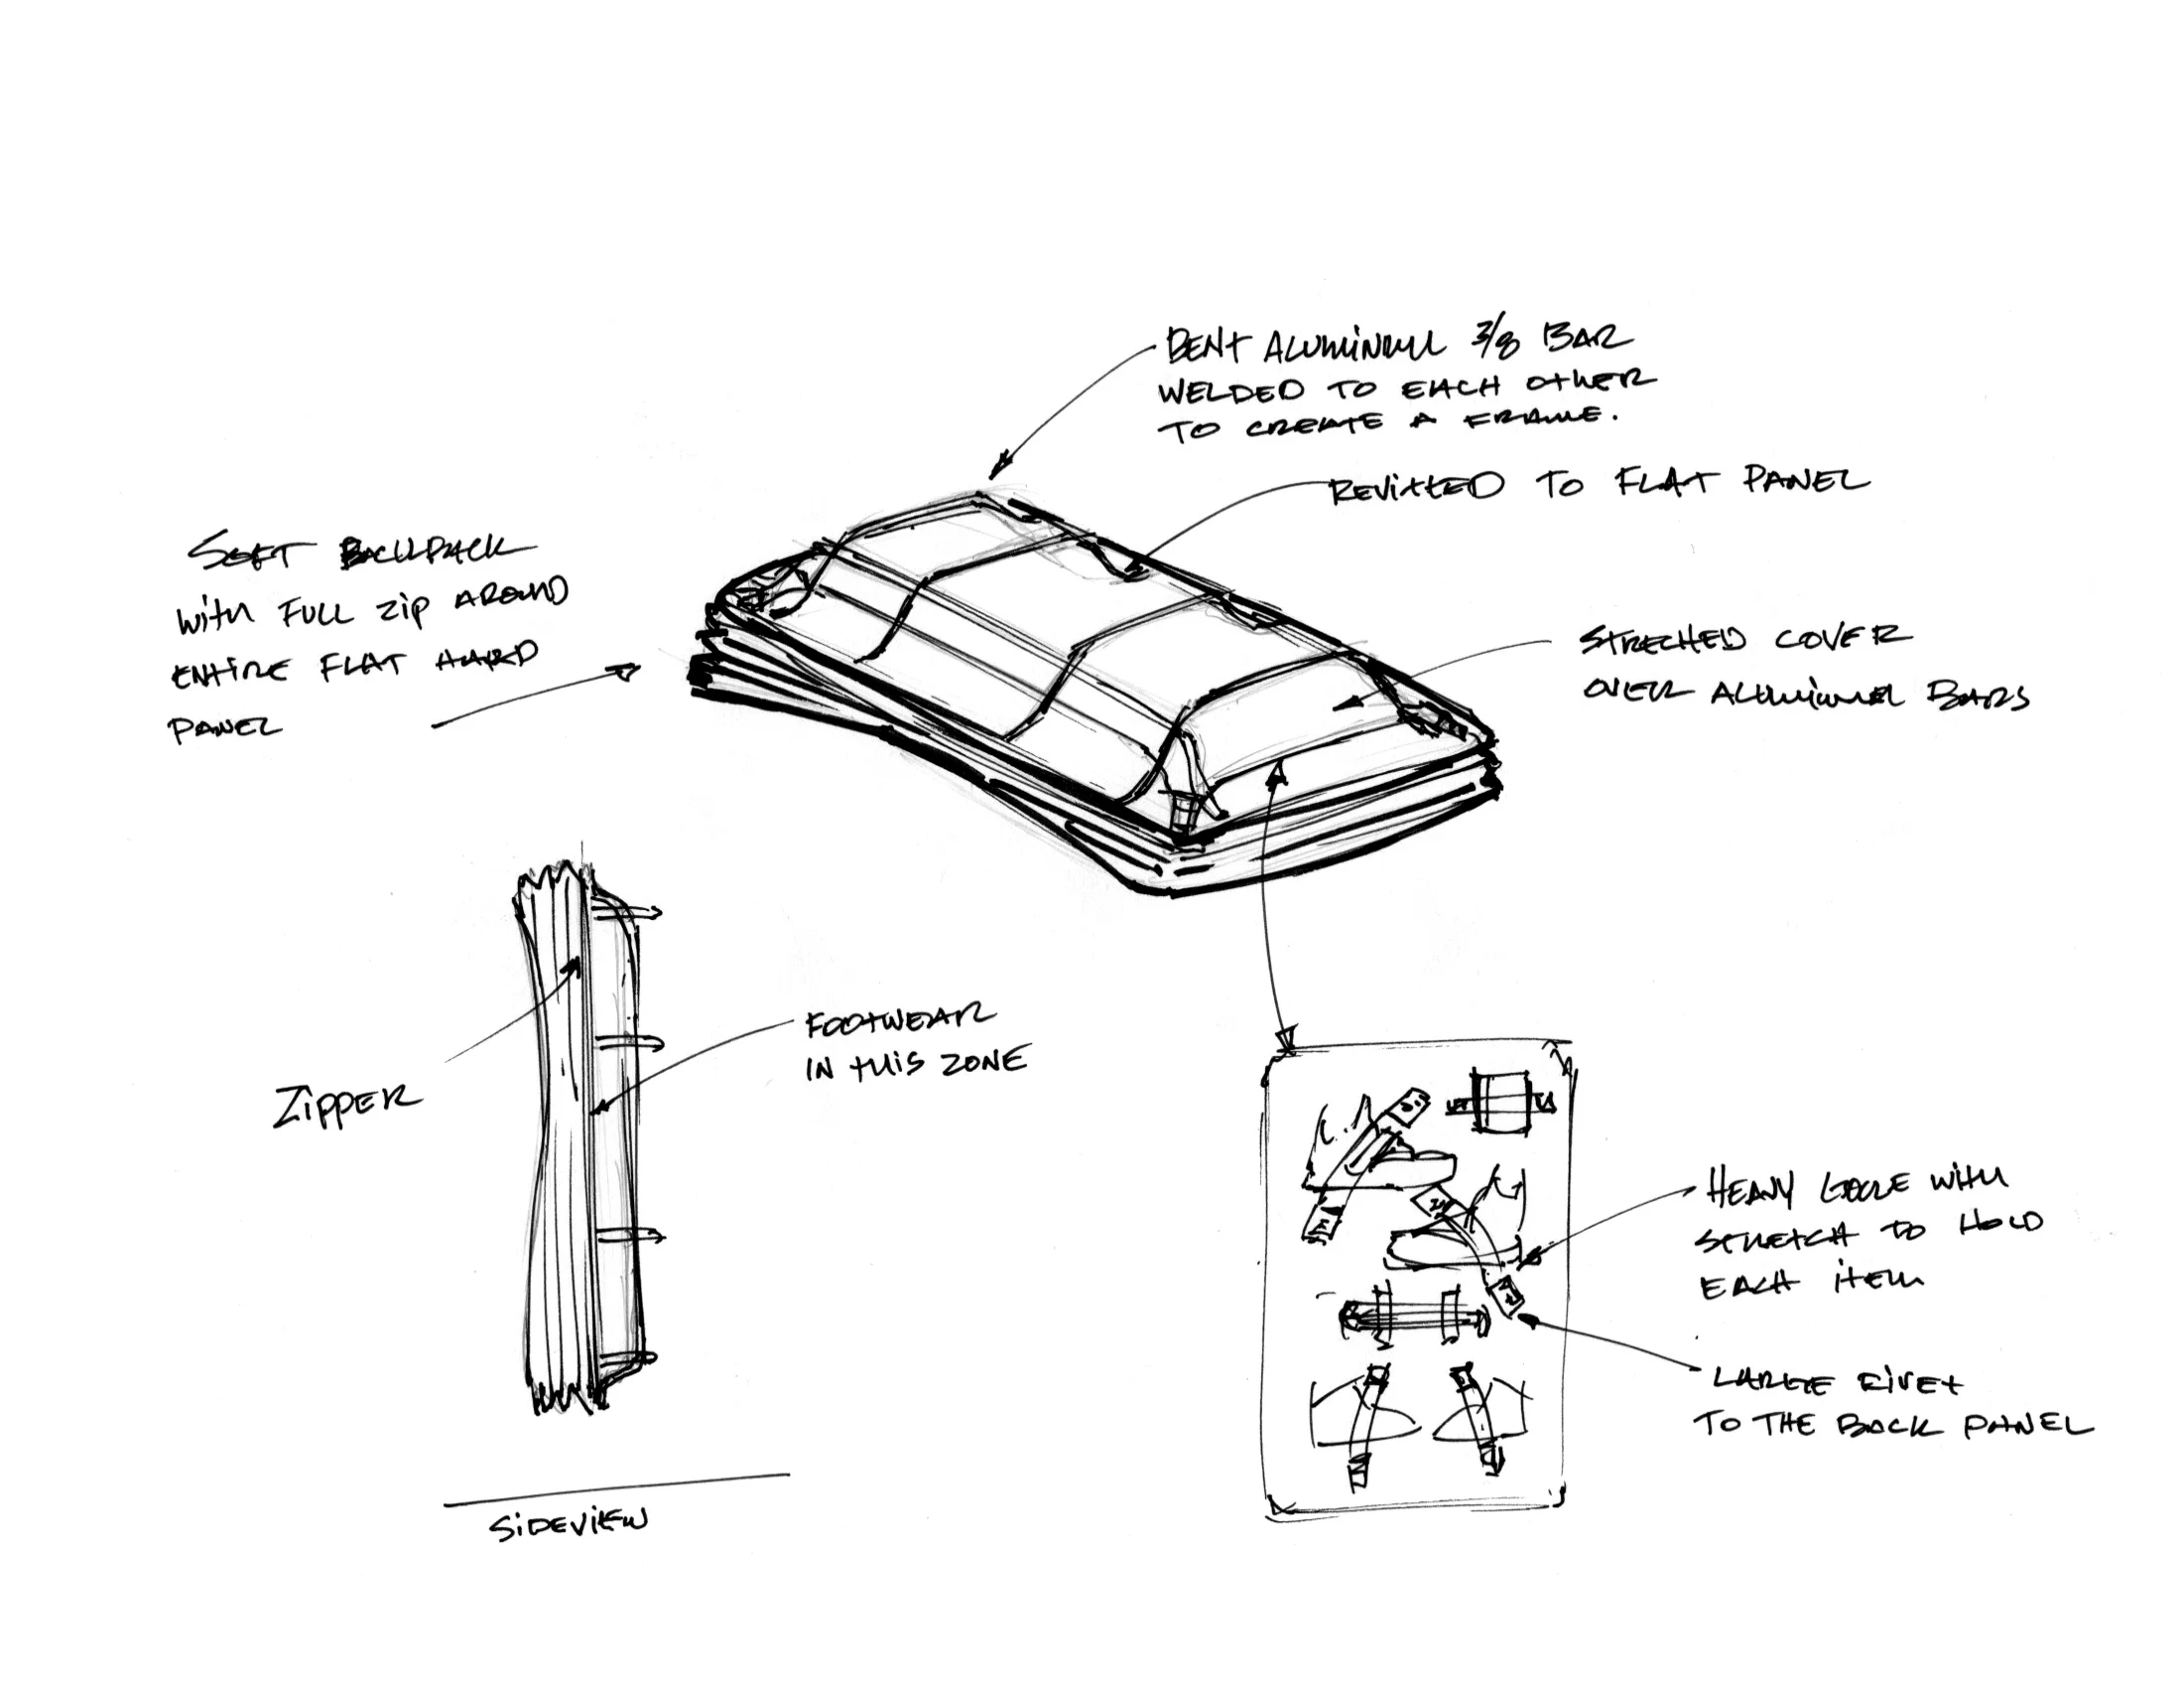 BENT ALUMINUM 3/8 BAR
WELDED TO EACH OTHER
TO CREATE A FRAME.
REVITTED TO FLAT PANEL
SOFT BACKPACK
WITH FULL ZIP AROUND
ENTIRE FLAT HARD
PANEL
STRECHED COVER
OVER ALUMINUM BARS
FOOTWEAR
IN THIS ZONE
ZIPPER
HEAVY GORE WITH
STRETCH TO HOLD
EACH ITEM
LARGE RIVET
TO THE BACK PANEL
SIDEVIEW